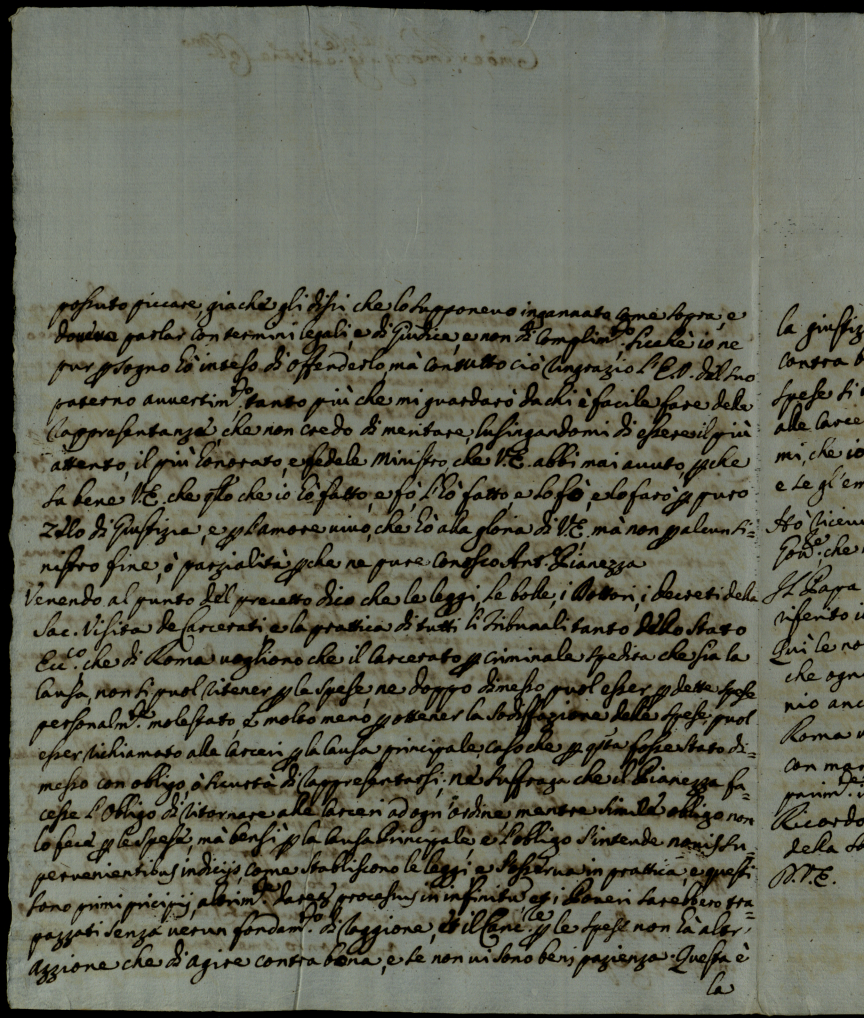 possuto piccare, giache gli dissi che lo supponevo ingannato come sopra, e
doveva parlar con termini legali, e di Giudice, e non di Complim.to Sicche io ne
pur p sogno hò inteso di offenderlo, mà contutto ciò ringrazio l'E.V. del suo
paterno avvertim.to, tanto più che mi guardarò da chi è facile fare delle
rappresentanze, che non credo di meritare, lusingandomi di essere il più
attento, il più honorato, e fedele Ministro, che V.E. abbi mai avuto, pche
sa bene V.E. che qllo che io hò fatto, e fò, l'hò fatto, e lo fò, e lo farò p puro
zelo di Giustizia, e p l'amore vivo, che hò alla gloria di V.E. mà non p alcun si=
nistro fine, ò parzialità pche ne pure conosco Ant.o Pianezza
Venendo al punto del precetto dico che le leggi, le bolle, i Dottori, i Decreti della
Sac. Visita de Carcerati e la prattica di tutti li Tribunali tanto dello Stato
Ecc.co che di Roma vogliono che il Carcerato p criminale spedita che sia la
Causa, non si puol ritener p le spese ne doppo dimesso puol esser p dette spese
personalm.te molestato, e molto meno p ottener la sodisfazione delle spese puol
esser richiamato alle Carceri p la Causa principale caso che p qsta fosse stato di=
messo con obligo, ò sicurtà di rappresentarsi; nè suffraga che il Pianezza fa=
cesse l'obligo di ritornare alle Carceri ad ogn'ordine mentre simile obligo non
lo fece p le spese, mà bensì p la Causa Principale, e l'obligo s'intende novis su=
pervenientibus indicijs, come stabliscono le leggi, e s'osserva in prattica, e questi
sono primi pricipij, altrim.te daretur processus in infinitum et i Poveri sarebbero stra=
pazzati senza verun fondam.to di raggione, et il Canc.re p le spese non hà altr'
azzione che di agire contra bona, e se non vi sono beni pazienza. Questa è
la
la giustiz
contra b
spese si
alle Carce
mi, che io
e se gl'em
Hò riceu
Gov.re, che
Il Papa
riferito i
Qui le no
che ogn
nio anc
Roma
con mar
parim.te
Ricordo
della
D.V.E.